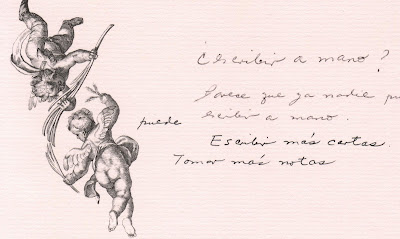 ¿Escribir a mano?
Parece que ya nadie
puede escribir a mano.
Escribir más cartas.
Tomar más notas